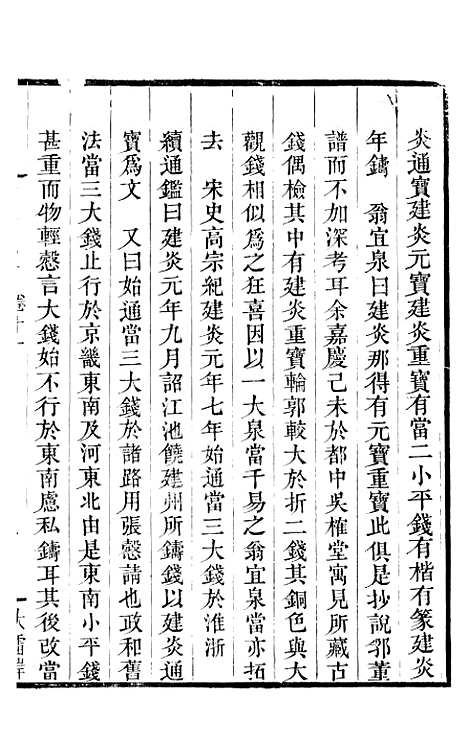 炎通寶建炎元寶建炎重寶有當二小平錢有楷有篆建炎
年鑄　翁宜泉曰建炎那得有元寶重寶此俱是抄說郛董
譜而不加深考耳余嘉慶己未於都中吳榷堂寓見所藏古
錢偶檢其中有建炎重寶輪郭較大於折二錢其銅色與大
觀錢相似為之狂喜因以一大泉當千易之翁宜泉當亦拓
去　宋史高宗紀建炎元年七年始通當三大錢於淮浙
續通鑑曰建炎元年九月詔江池饒建州所鑄錢以建炎通
寶為文　又曰始通當三大錢於諸路用張愨請也政和舊
法當三大錢止行於京畿東南及河東北由是東南小平錢
甚重而物輕愨言大錢始不行於東南慮私鑄耳其後改當
卷十一